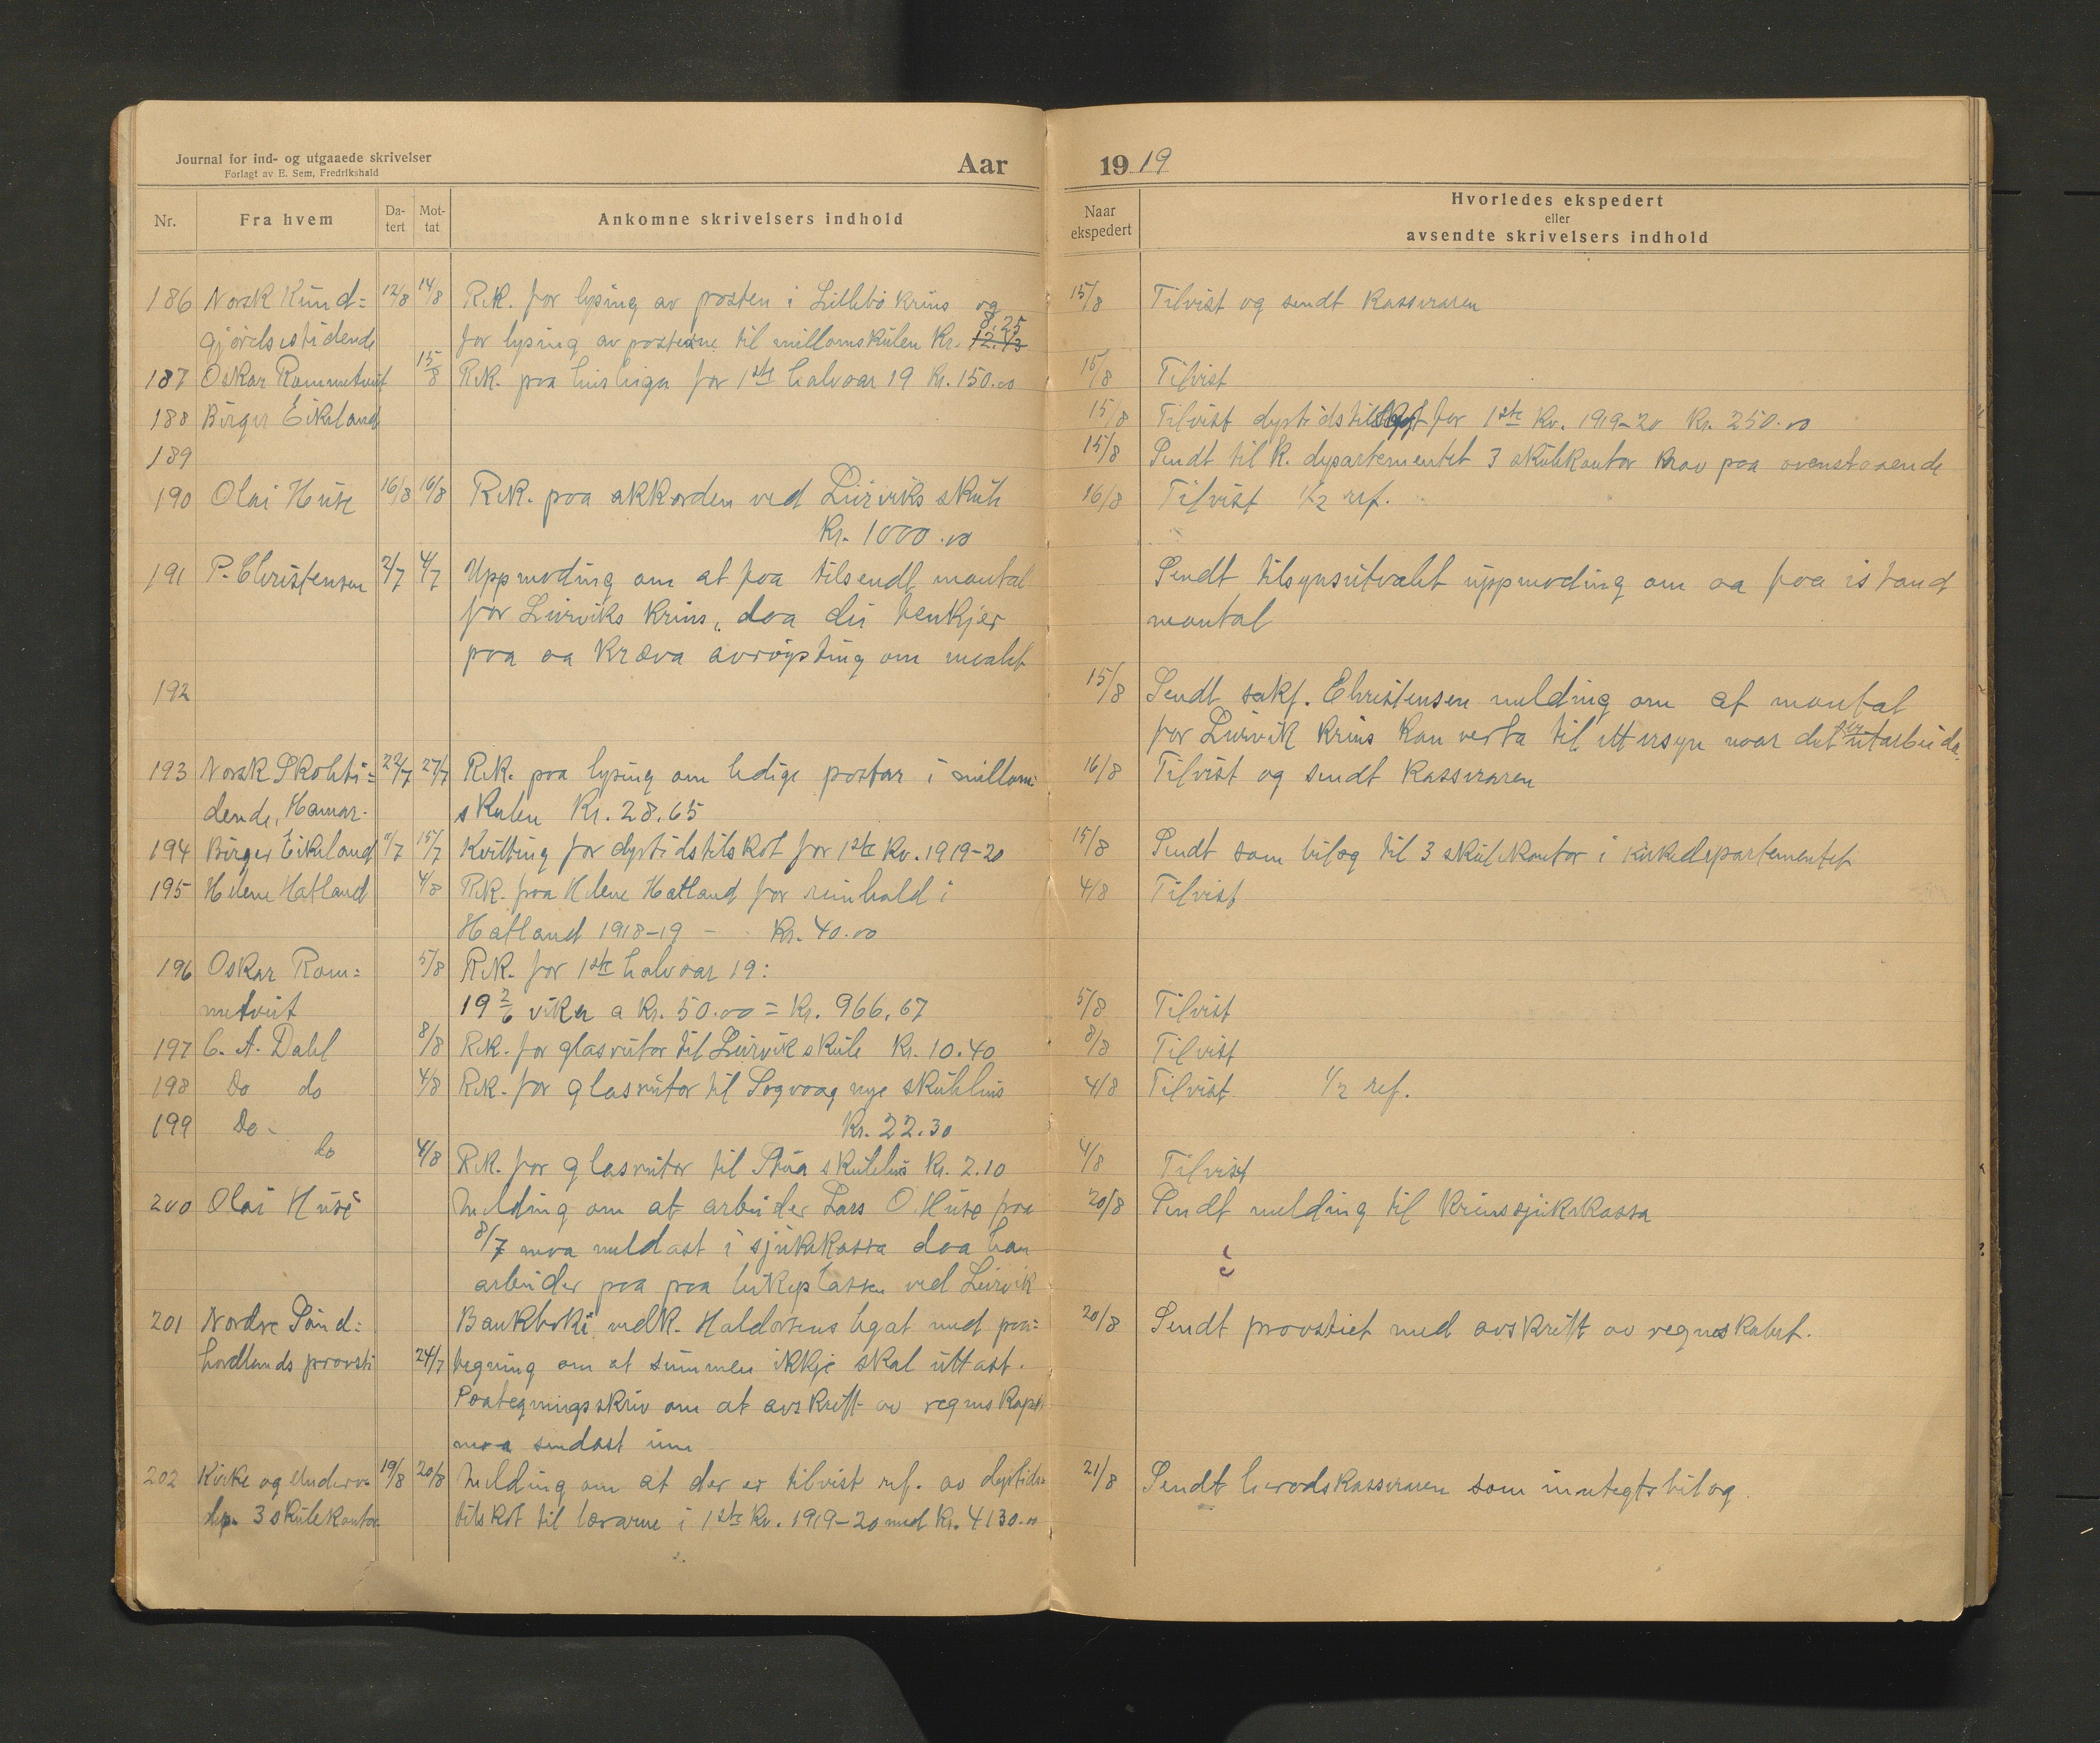 Journal for ind- og utgaaede skrivelser
Forlagt av E. Sem, Fredrikshald
Aar
Nr.
Fra hvem
Da-
tert
Mot-
tat
Ankomne skrivelsers indhold
186 Norsk Kund= 12/8 14/8 Rek. for lysing av posten i Litlebö krins og
8.25
gjörelsestidende for lysing av postene til millomskulen Kr. 12.13
187 Oskar Rommetveit 15/8 Rek. paa husleiga for 1ste halvaar 19 Kr. 150.00
188 Birger Eikeland
189
190 Olai Huse 16/8 16/8 Rek. paa akkorden ved Leirviks skule
Kr. 1000.00
191 P. Christensen 2/7 4/7 Uppmoding om at faa tilsendt mantal
for Leirviks krins, daa dei tenkjer
paa aa kræva avröysting om maalet
192
193 Norsk Skoleti= 22/7 27/7 Rek. paa lysing om ledige postar i millom=
dende, Hamar. skulen Kr. 28.65
194 Birger Eikeland 11/7 15/7 Kvitting for dyrtidstilskot for 1ste Kv. 1919-20
195 Helene Hatland 4/8 Rek. fraa Helene Hatland for reinhald i
Hatland 1918-19 - Kr. 40.00
196 Oskar Rom= 5/8 Rek. for 1ste halvaar 19:
metveit 19 2/6 viker a Kr. 50.00 = Kr. 966,67
197 C. A. Dahl 8/8 Rek. for glasrutor til Leirvik skule Kr. 10.40
198 Do do 4/8 Rek. for glasrutor til Sagvaag nye skulehus
199 Do- Kr. 22.30
do 4/8 Rek. for glasrutor til skulehus Kr. 2.10
200 Olai Huse Melding om at arbeider Lars O. Huse fraa
8/7 maa meldast i sjukekassa daa han
arbeider paa paa leikeplassen ved Leirvik
201 Nordre Sönd= Bankboki vedk. Haldorsens legat med paa=
hordlands prosti 24/7 tegning om at summen ikkje skal uttast.
Paategningsskriv om at avskrift av regnskapet
maa sendast inn
202 Kirke og Underv. 19/8 20/8 Melding om at der er tilvist ref. av dyrtids=
dep. 3 skulekontor tilskot til lærarne i 1ste Kv. 1919-20 med Kr. 4130.00
1919
Naar
ekspedert
Hvorledes ekspedert
eller
avsendte skrivelsers indhold
15/8 Tilvist og sendt Kasseraren
15/8 Tilvist
15/8 Tilvist dyrtidstilskot for 1ste Kv. 1919-20 Kr. 250.00
15/8 Sendt til K. departementet 3 skulekontor krav paa ovenstaaende
16/8 Tilvist 1/2 ref.
Sendt tilsynsutvalet uppmoding om aa faa istand
mantal
15/8 Sendt sakf. Christensen melding om at mantal
for Leirvik krins kan verta til ettersyn naar det er utarbeida.
16/8 Tilvist og sendt Kasseraren
15/8 Sendt som bilag til 3 skulekontor i Kirkedepartementet
4/8 Tilvist
5/8 Tilvist
8/8 Tilvist
4/8 Tilvist 1/2 ref.
4/8 Tilvist
20/8 Sendt melding til Krinssjukekassa
20/8 Sendt prostiet med avskrift av regneskabet.
21/8 Sendt heradskasseraren som inntegtsbilag.